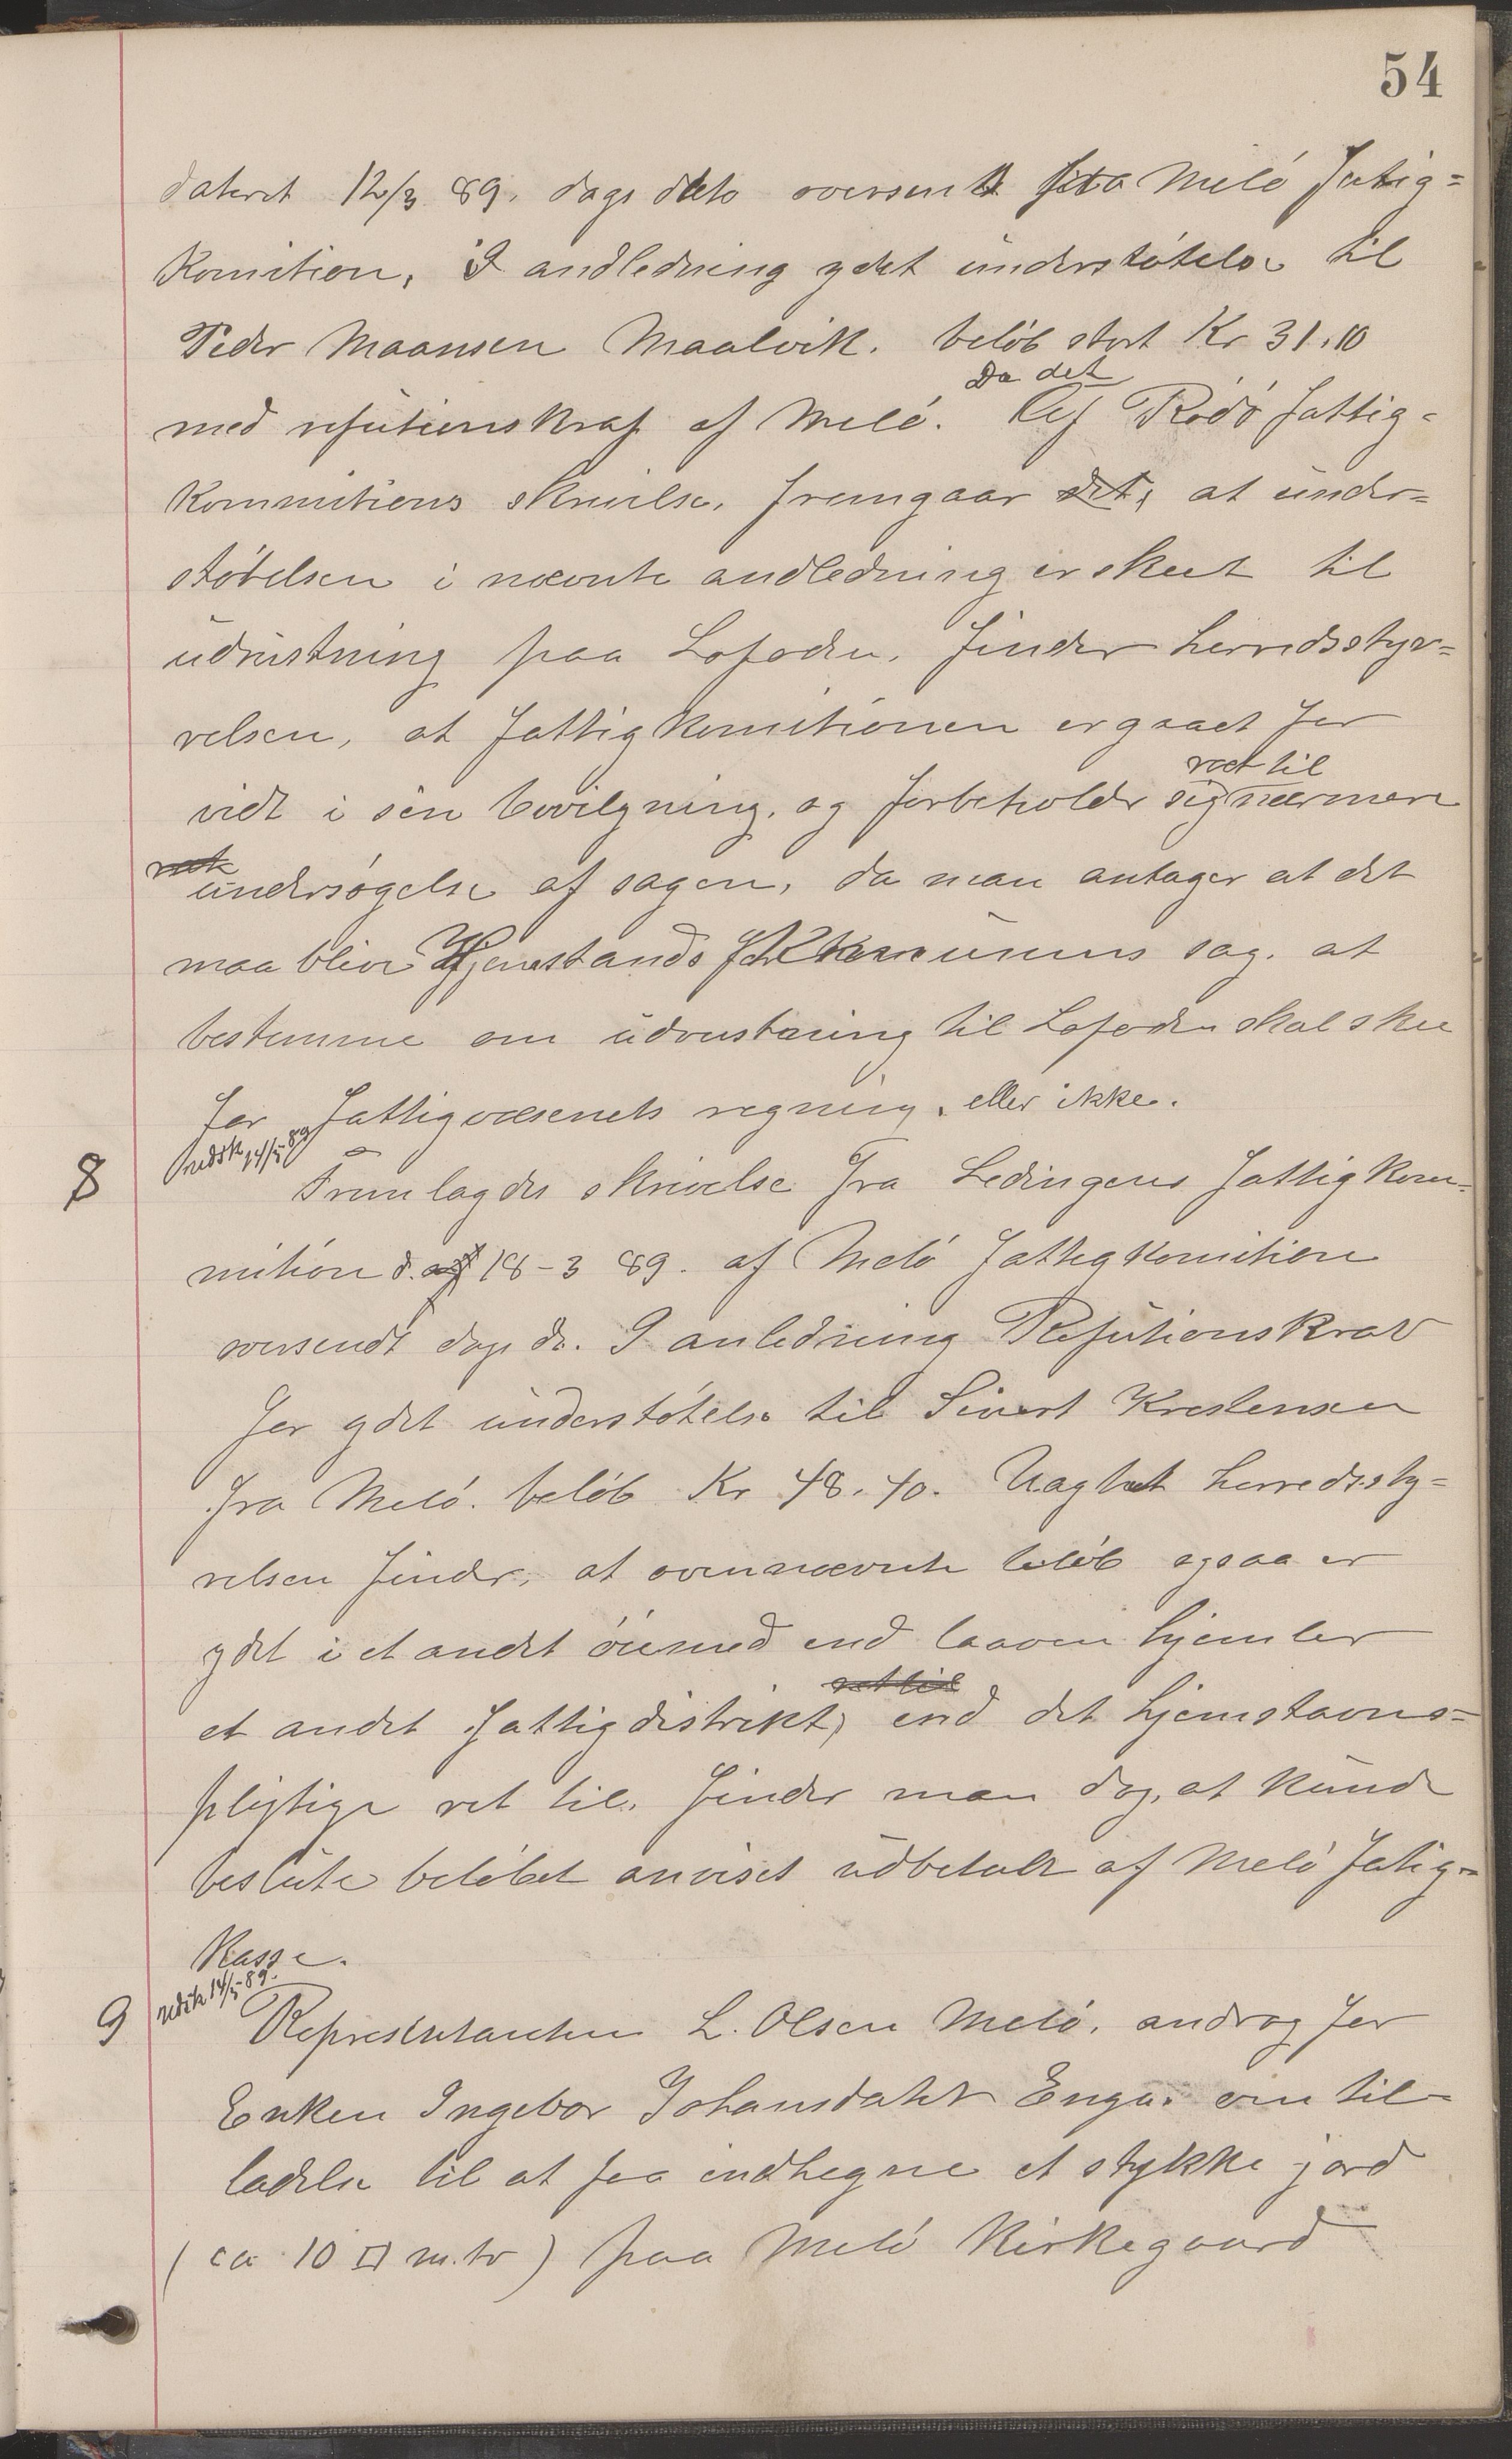 54
dateret 12/3 89. dags dato oversendt fra Melö Fatig=
Komition, I andledning ydet understötelse til
Peder Maansen Maalvik. belöb stort Kr 31.10
med refutionskraf af Melö. Da det Af Rödö fattig=
kommitions skrivelse, fremgaar det, at under=
stötelsen i nævnte andledning er skeet til
udrustning paa Lofoden. finder herredsstyr=
relsen, at fattigkomitionen er gaaet for
vidt i sin bevilgning, og forbeholder sig ret til nærmere
ret undersögelse af sagen, da man antager at det
maa blive Hjemstands Kommunens sag. at
bestemme om udrustning til Lofoden skal skee
for fattigvæsenets regning. eller ikke.
Udsk 14/5 89
8 Fremlagdes skrivelse fra Lödingens fattigkom=
mition d. af 18-3 89. af Melö Fattigkomition
oversendt dags do. I anledning Refutionskrav
for ydet understötelse til Sivert Kreslensen
fra Melö. belöb Kr 48.40. Uagtet herredssty=
relsen finder, at ovennævnte belöb ogsaa er
ydet i et andet öiemed end laaven hjemler
ret til
et andet fattigdistrikt, end det hjemstavns=
pligtige ret til. finder man dog, at kunde
beslute belöbet anviset udbetalt af Melö Fatig=
kasse.
Udsk 14/5 89.
9 Representanten L. Olsen Melö. androg for
Enken Ingebor Johansdatter Enga. om til=
ladelse til at faa indhegne et stykke jord
(ca 10 □ m.tr) paa Melö Kirkegaard